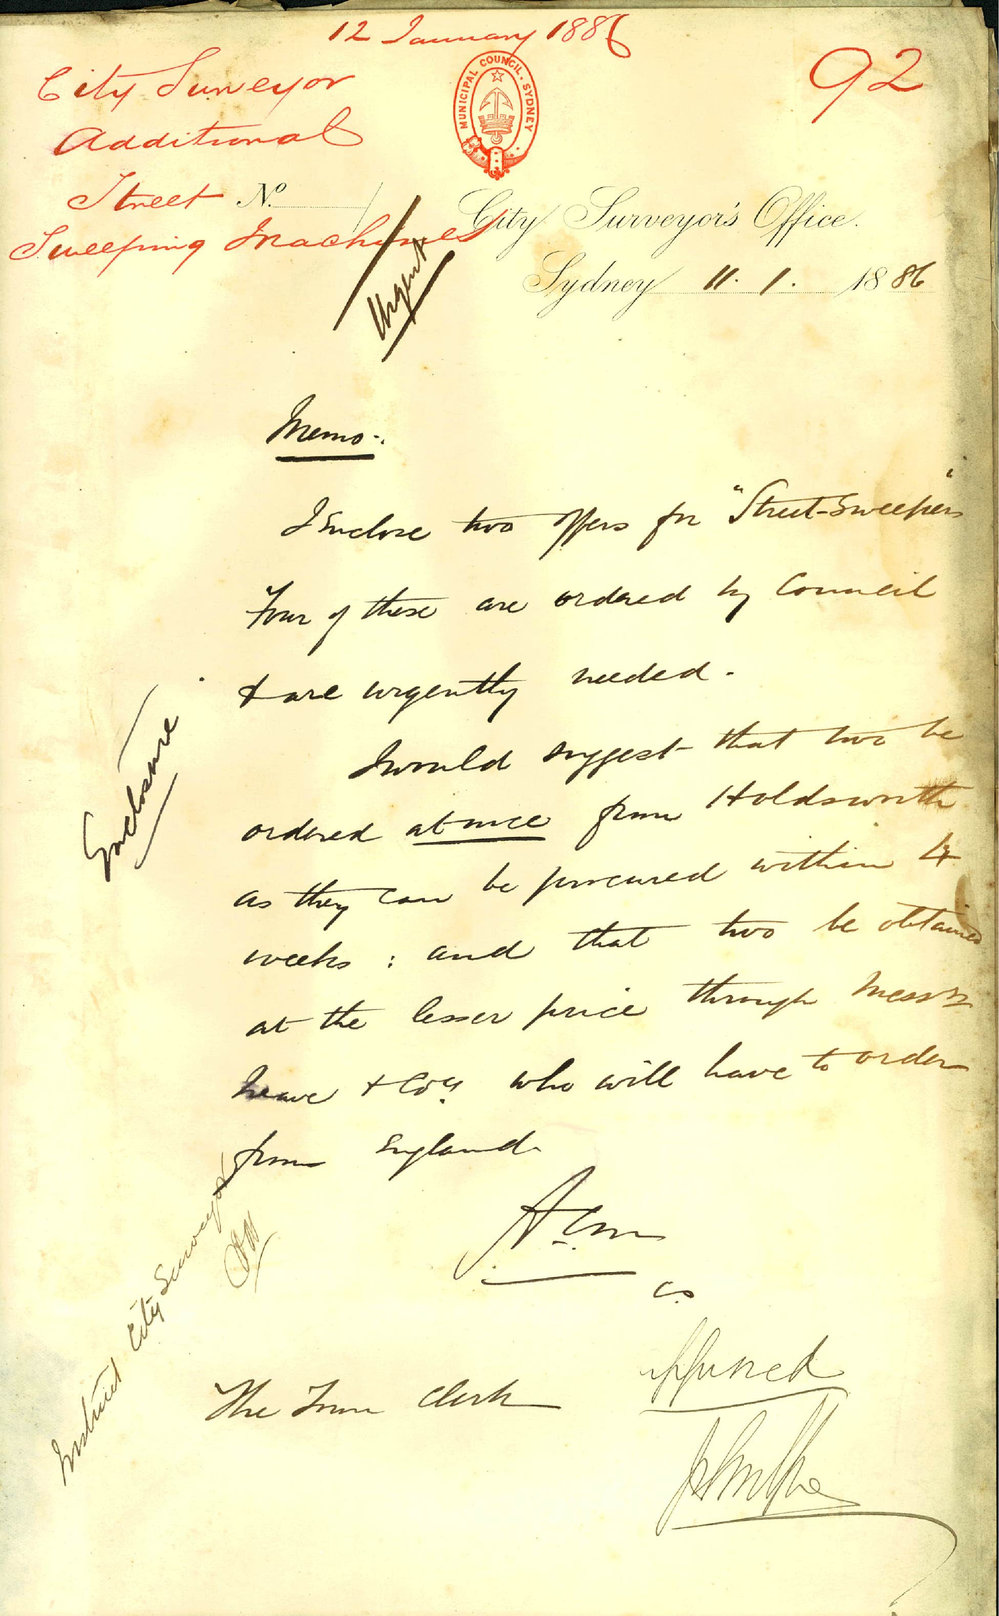 12 January 1886
92
City Surveyor
Additional
Street
Sweeping Machines
MUNICIPAL COUNCIL. SYDNEY
No
City Surveyor's Office.
Sydney 11. 1. 1886
Urgent
Memo.
I Enclose two offers for "Street-Sweepers"
Four of these are ordered by Council
& are urgently needed.
Enclosure
I would suggest that two be
ordered at once from Holdsworth
as they can be procured within 4
weeks : and that two be obtained
at the lesser price through Messrs
& Coy. who will have to order
from England.
CS
Instruct City Surveyor
approved
The Town Clerk